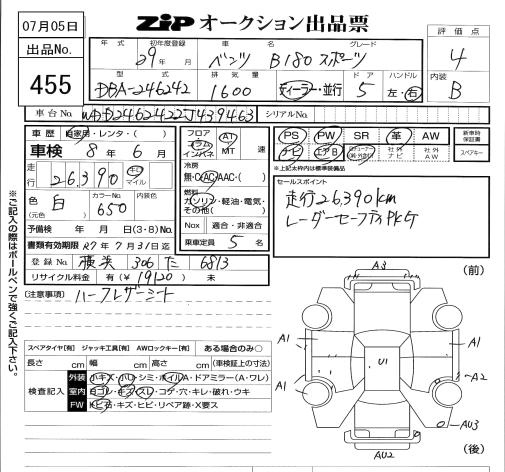 07月05日
ZIP オークション出品票
出品No.
455
年式 初年度登録 車名 グレード
29年 月 ベンツ B180 スポーツ
型式 排気量 ドア ハンドル
DBA-246242 1600 ディーラー・並行 5 左・右
評価点
4
内装
B
車台No. WDD2462422J439463 シリアルNo.
車歴 自家用・レンタ・( )
車検 8年 6月
走行 26,390 キロ マイル
色 白 (元色) カラーNo. 650 内装色
予備検 年 月 日(3・8)No.
書類有効期限 R7年 7月 31日迄
登録No. 横浜 306 た 6813
リサイクル料金 有(¥ 19120 ) 未
フロア コラム インパネ AT MT 速
冷房 無・C・AC・AAC・( )
燃料 ガソリン・軽油・電気・その他( )
Nox 適合・非適合
乗車定員 5 名
PS PW SR 革 AW 新車時保証書
ナビ エアB 社外ナビ 社外AW スペアキー
※上記以外は標準装備品
セールスポイント
走行26,390km
レーダーセーフティPKG
(注意事項) ハーフレザーシート
※ご記入の際はボールペンで強くご記入下さい。
スペアタイヤ【有】 ジャッキ工具【有】 AWロックキー【有】 ある場合のみ○
長さ cm 幅 cm 高さ cm (車検証上の寸法)
検査記入
外装 小キズ・小ヘコ・シミ・ホイルA・ドアミラー(A・ワレ)
室内 ヨゴレ・キズ・スレ・コゲ・穴・キレ・破れ・ウキ
FW 飛石・キズ・ヒビ・リペア跡・X要ス
(前)
A3
A1
A1
U1
A1
A2
AU3
AU2
(後)